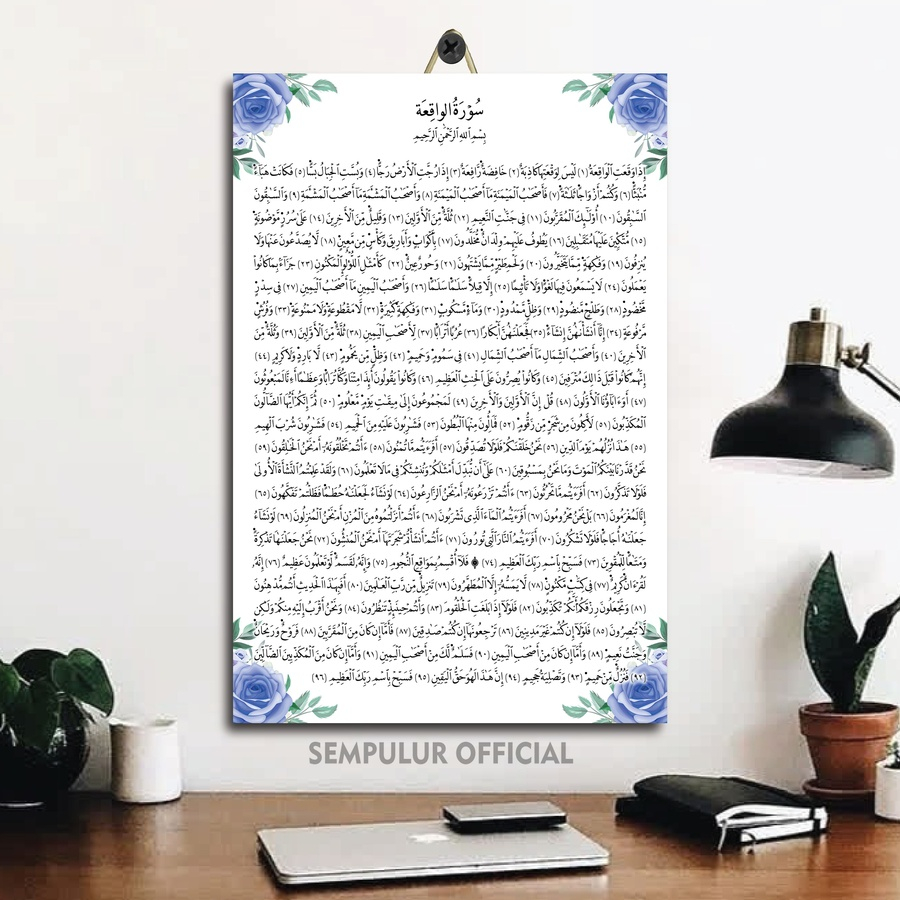 سُوْرَةُ الواقِعَة
بِسْمِ اللهِ الرَّحْمٰنِ الرَّحِيْمِ
إِذَا وَقَعَتِ ٱلْوَاقِعَةُ (١) لَيْسَ لِوَقْعَتِهَا كَاذِبَةٌ (٢) خَافِضَةٌ رَّافِعَةٌ (٣) إِذَا رُجَّتِ ٱلْأَرْضُ رَجًّا (٤) وَبُسَّتِ ٱلْجِبَالُ بَسًّا (٥) فَكَانَتْ هَبَآءً
مُّنۢبَثًّا (٦) وَكُنتُمْ أَزْوَٰجًا ثَلَٰثَةً (٧) فَأَصْحَٰبُ ٱلْمَيْمَنَةِ مَآ أَصْحَٰبُ ٱلْمَيْمَنَةِ (٨) وَأَصْحَٰبُ ٱلْمَشْـَٔمَةِ مَآ أَصْحَٰبُ ٱلْمَشْـَٔمَةِ (٩) وَٱلسَّٰبِقُونَ
ٱلسَّٰبِقُونَ (١٠) أُو۟لَٰٓئِكَ ٱلْمُقَرَّبُونَ (١١) فِى جَنَّٰتِ ٱلنَّعِيمِ (١٢) ثُلَّةٌ مِّنَ ٱلْأَوَّلِينَ (١٣) وَقَلِيلٌ مِّنَ ٱلْءَاخِرِينَ (١٤) عَلَىٰ سُرُرٍ مَّوْضُونَةٍ
(١٥) مُّتَّكِـِٔينَ عَلَيْهَا مُتَقَٰبِلِينَ (١٦) يَطُوفُ عَلَيْهِمْ وِلْدَٰنٌ مُّخَلَّدُونَ (١٧) بِأَكْوَابٍ وَأَبَارِيقَ وَكَأْسٍ مِّن مَّعِينٍ (١٨) لَّا يُصَدَّعُونَ عَنْهَا وَلَا
يُنزِفُونَ (١٩) وَفَٰكِهَةٍ مِّمَّا يَتَخَيَّرُونَ (٢٠) وَلَحْمِ طَيْرٍ مِّمَّا يَشْتَهُونَ (٢١) وَحُورٌ عِينٌ (٢٢) كَأَمْثَٰلِ ٱللُّؤْلُؤِ ٱلْمَكْنُونِ (٢٣) جَزَآءًۢ بِمَا كَانُوا۟
يَعْمَلُونَ (٢٤) لَا يَسْمَعُونَ فِيهَا لَغْوًا وَلَا تَأْثِيمًا (٢٥) إِلَّا قِيلًا سَلَٰمًا سَلَٰمًا (٢٦) وَأَصْحَٰبُ ٱلْيَمِينِ مَآ أَصْحَٰبُ ٱلْيَمِينِ (٢٧) فِى سِدْرٍ
مَّخْضُودٍ (٢٨) وَطَلْحٍ مَّنضُودٍ (٢٩) وَظِلٍّ مَّمْدُودٍ (٣٠) وَمَآءٍ مَّسْكُوبٍ (٣١) وَفَٰكِهَةٍ كَثِيرَةٍ (٣٢) لَّا مَقْطُوعَةٍ وَلَا مَمْنُوعَةٍ (٣٣) وَفُرُشٍ
مَّرْفُوعَةٍ (٣٤) إِنَّآ أَنشَأْنَٰهُنَّ إِنشَآءً (٣٥) فَجَعَلْنَٰهُنَّ أَبْكَارًا (٣٦) عُرُبًا أَتْرَابًا (٣٧) لِّأَصْحَٰبِ ٱلْيَمِينِ (٣٨) ثُلَّةٌ مِّنَ ٱلْأَوَّلِينَ (٣٩) وَثُلَّةٌ مِّنَ
ٱلْءَاخِرِينَ (٤٠) وَأَصْحَٰبُ ٱلشِّمَالِ مَآ أَصْحَٰبُ ٱلشِّمَالِ (٤١) فِى سَمُومٍ وَحَمِيمٍ (٤٢) وَظِلٍّ مِّن يَحْمُومٍ (٤٣) لَّا بَارِدٍ وَلَا كَرِيمٍ (٤٤)
إِنَّهُمْ كَانُوا۟ قَبْلَ ذَٰلِكَ مُتْرَفِينَ (٤٥) وَكَانُوا۟ يُصِرُّونَ عَلَى ٱلْحِنثِ ٱلْعَظِيمِ (٤٦) وَكَانُوا۟ يَقُولُونَ أَئِذَا مِتْنَا وَكُنَّا تُرَابًا وَعِظَٰمًا أَءِنَّا لَمَبْعُوثُونَ
(٤٧) أَوَءَابَآؤُنَا ٱلْأَوَّلُونَ (٤٨) قُلْ إِنَّ ٱلْأَوَّلِينَ وَٱلْءَاخِرِينَ (٤٩) لَمَجْمُوعُونَ إِلَىٰ مِيقَٰتِ يَوْمٍ مَّعْلُومٍ (٥٠) ثُمَّ إِنَّكُمْ أَيُّهَا ٱلضَّآلُّونَ
ٱلْمُكَذِّبُونَ (٥١) لَءَاكِلُونَ مِن شَجَرٍ مِّن زَقُّومٍ (٥٢) فَمَالِـُٔونَ مِنْهَا ٱلْبُطُونَ (٥٣) فَشَٰرِبُونَ عَلَيْهِ مِنَ ٱلْحَمِيمِ (٥٤) فَشَٰرِبُونَ شُرْبَ ٱلْهِيمِ
(٥٥) هَٰذَا نُزُلُهُمْ يَوْمَ ٱلدِّينِ (٥٦) نَحْنُ خَلَقْنَٰكُمْ فَلَوْلَا تُصَدِّقُونَ (٥٧) أَفَرَءَيْتُم مَّا تُمْنُونَ (٥٨) ءَأَنتُمْ تَخْلُقُونَهُۥٓ أَمْ نَحْنُ ٱلْخَٰلِقُونَ (٥٩)
نَحْنُ قَدَّرْنَا بَيْنَكُمُ ٱلْمَوْتَ وَمَا نَحْنُ بِمَسْبُوقِينَ (٦٠) عَلَىٰٓ أَن نُّبَدِّلَ أَمْثَٰلَكُمْ وَنُنشِئَكُمْ فِى مَا لَا تَعْلَمُونَ (٦١) وَلَقَدْ عَلِمْتُمُ ٱلنَّشْأَةَ ٱلْأُولَىٰ
فَلَوْلَا تَذَكَّرُونَ (٦٢) أَفَرَءَيْتُم مَّا تَحْرُثُونَ (٦٣) ءَأَنتُمْ تَزْرَعُونَهُۥٓ أَمْ نَحْنُ ٱلزَّٰرِعُونَ (٦٤) لَوْ نَشَآءُ لَجَعَلْنَٰهُ حُطَٰمًا فَظَلْتُمْ تَفَكَّهُونَ (٦٥)
إِنَّا لَمُغْرَمُونَ (٦٦) بَلْ نَحْنُ مَحْرُومُونَ (٦٧) أَفَرَءَيْتُمُ ٱلْمَآءَ ٱلَّذِى تَشْرَبُونَ (٦٨) ءَأَنتُمْ أَنزَلْتُمُوهُ مِنَ ٱلْمُزْنِ أَمْ نَحْنُ ٱلْمُنزِلُونَ (٦٩) لَوْ نَشَآءُ
جَعَلْنَٰهُ أُجَاجًا فَلَوْلَا تَشْكُرُونَ (٧٠) أَفَرَءَيْتُمُ ٱلنَّارَ ٱلَّتِى تُورُونَ (٧١) ءَأَنتُمْ أَنشَأْتُمْ شَجَرَتَهَآ أَمْ نَحْنُ ٱلْمُنشِـُٔونَ (٧٢) نَحْنُ جَعَلْنَٰهَا تَذْكِرَةً
وَمَتَٰعًا لِّلْمُقْوِينَ (٧٣) فَسَبِّحْ بِٱسْمِ رَبِّكَ ٱلْعَظِيمِ (٧٤) ۞ فَلَآ أُقْسِمُ بِمَوَٰقِعِ ٱلنُّجُومِ (٧٥) وَإِنَّهُۥ لَقَسَمٌ لَّوْ تَعْلَمُونَ عَظِيمٌ (٧٦) إِنَّهُۥ
لَقُرْءَانٌ كَرِيمٌ (٧٧) فِى كِتَٰبٍ مَّكْنُونٍ (٧٨) لَّا يَمَسُّهُۥٓ إِلَّا ٱلْمُطَهَّرُونَ (٧٩) تَنزِيلٌ مِّن رَّبِّ ٱلْعَٰلَمِينَ (٨٠) أَفَبِهَٰذَا ٱلْحَدِيثِ أَنتُم مُّدْهِنُونَ
(٨١) وَتَجْعَلُونَ رِزْقَكُمْ أَنَّكُمْ تُكَذِّبُونَ (٨٢) فَلَوْلَآ إِذَا بَلَغَتِ ٱلْحُلْقُومَ (٨٣) وَأَنتُمْ حِينَئِذٍ تَنظُرُونَ (٨٤) وَنَحْنُ أَقْرَبُ إِلَيْهِ مِنكُمْ وَلَٰكِن
لَّا تُبْصِرُونَ (٨٥) فَلَوْلَآ إِن كُنتُمْ غَيْرَ مَدِينِينَ (٨٦) تَرْجِعُونَهَآ إِن كُنتُمْ صَٰدِقِينَ (٨٧) فَأَمَّآ إِن كَانَ مِنَ ٱلْمُقَرَّبِينَ (٨٨) فَرَوْحٌ وَرَيْحَانٌ
وَجَنَّتُ نَعِيمٍ (٨٩) وَأَمَّآ إِن كَانَ مِنْ أَصْحَٰبِ ٱلْيَمِينِ (٩٠) فَسَلَٰمٌ لَّكَ مِنْ أَصْحَٰبِ ٱلْيَمِينِ (٩١) وَأَمَّآ إِن كَانَ مِنَ ٱلْمُكَذِّبِينَ ٱلضَّآلِّينَ
(٩٢) فَنُزُلٌ مِّنْ حَمِيمٍ (٩٣) وَتَصْلِيَةُ جَحِيمٍ (٩٤) إِنَّ هَٰذَا لَهُوَ حَقُّ ٱلْيَقِينِ (٩٥) فَسَبِّحْ بِٱسْمِ رَبِّكَ ٱلْعَظِيمِ (٩٦)
SEMPULUR OFFICIAL